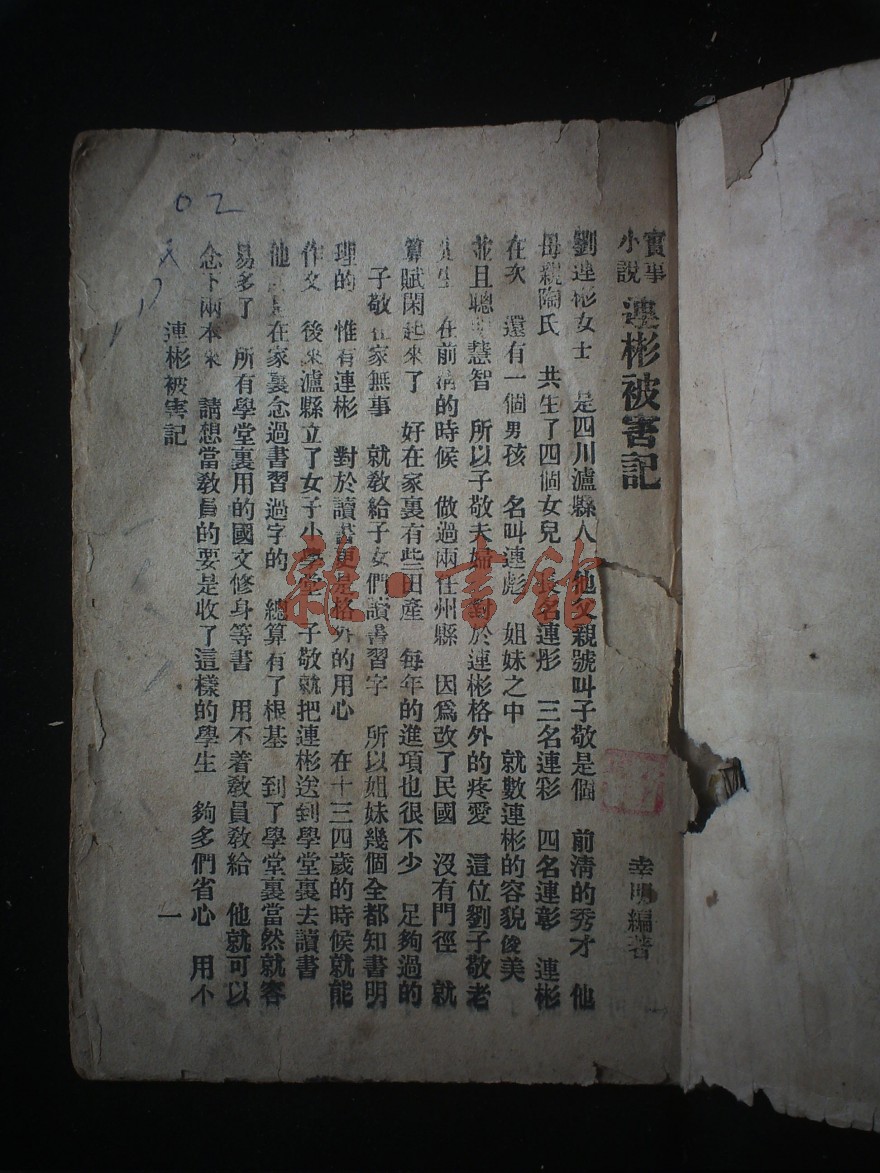 實事小說 連彬被害記
幸明編著
劉連彬女士 是四川瀘縣人 他父親號叫子敬是個 前淸的秀才 他
母親陶氏 共生了四個女兒 長名連彤 三名連彩 四名連彰 連彬
在次 還有一個男孩 名叫連彪 姐妹之中 就數連彬的容貌俊美
並且聰明慧智 所以子敬夫婦 對於連彬格外的疼愛 這位劉子敬老
先生 在前淸的時候 做過兩任州縣 因爲改了民國 沒有門徑 就
算賦閑起來了 好在家裏有些田產 每年的進項也很不少 足夠過的
子敬在家無事 就敎給子女們讀書習字 所以姐妹幾個全都知書明
理的 惟有連彬 對於讀書更是格外的用心 在十三四歲的時候就能
作文 後來瀘縣立了女子小學堂 子敬就把連彬送到學堂裏去讀書
他 是在家裏念過書習過字的 總算有了根基 到了學堂裏當然就容
易多了 所有學堂裏用的國文修身等書 用不着敎員敎給 他就可以
念下兩本來 請想當敎員的要是收了這樣的學生 夠多們省心 用不
連彬被害記
一
02
雜·書館